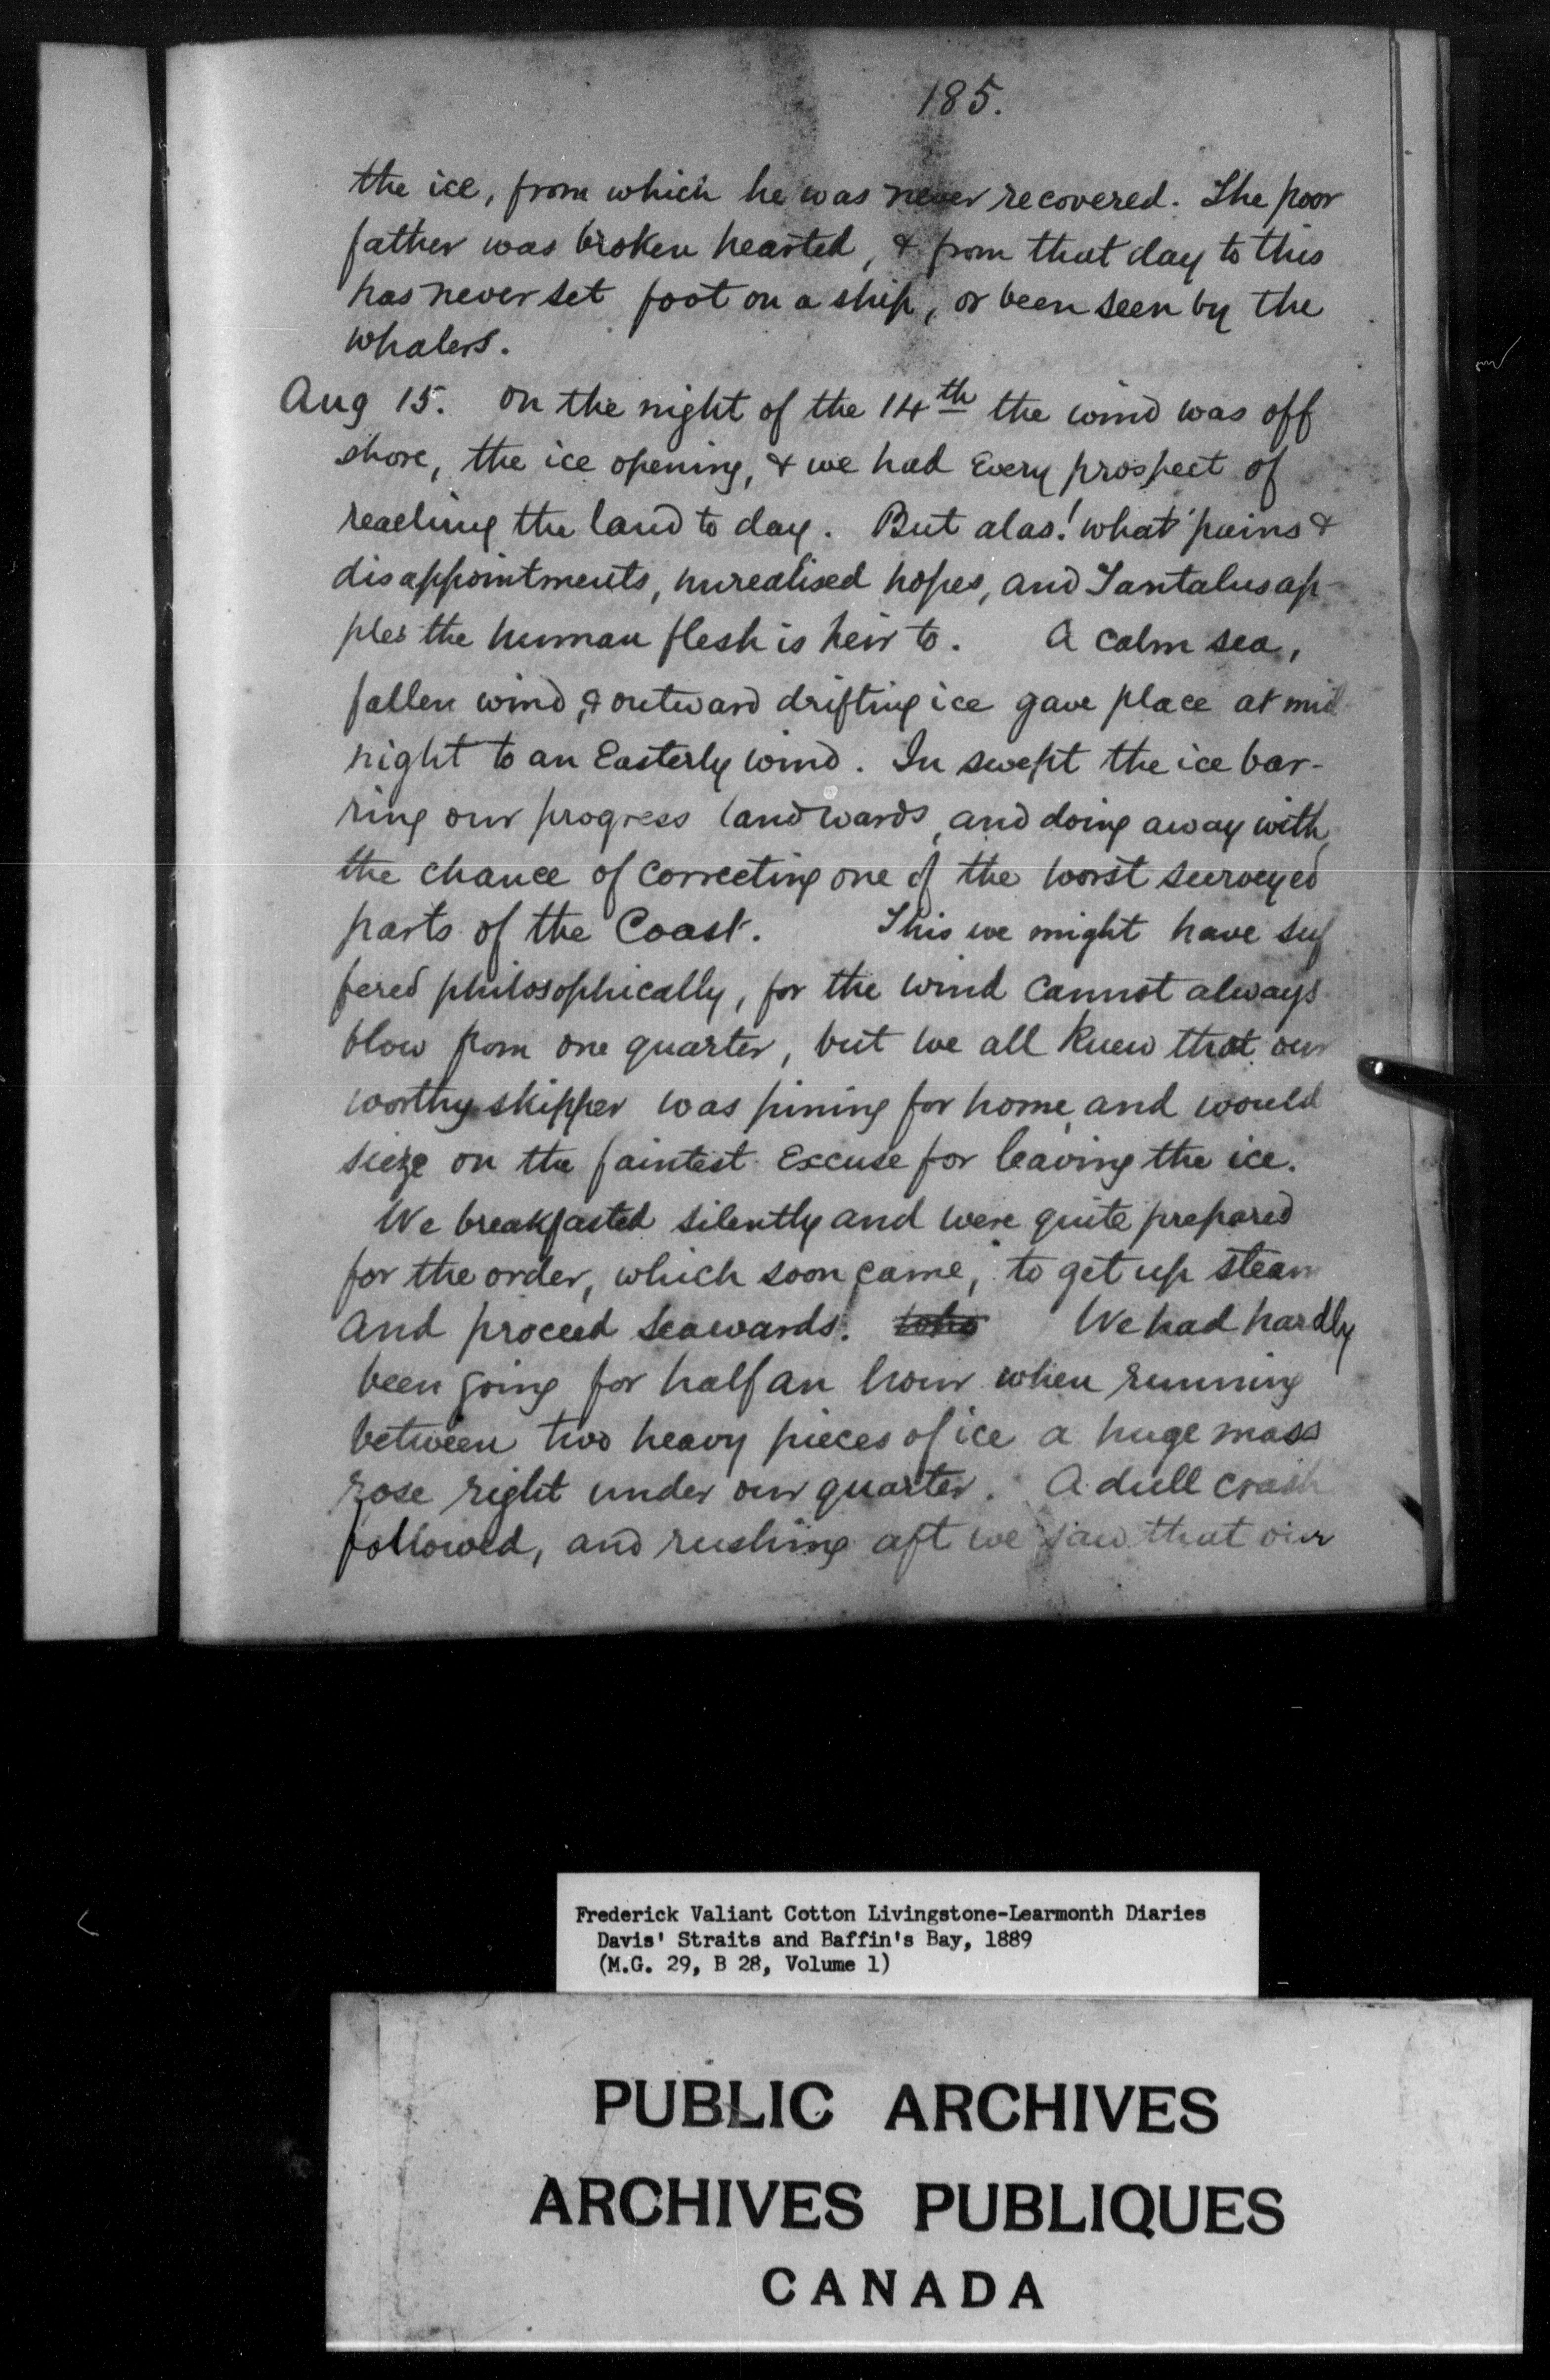 185.
the ice, from which he was never recovered. The poor
father was broken hearted, & from that day to this
has never set foot on a ship, or been seen by the
whalers.
Aug 15. On the night of the 14th the wind was off
shore, the ice opening, & we had every prospect of
reaching the land to day. But alas! what pains &
disappointments, unrealised hopes, and Tantalus ap-
ples the human flesh is heir to. A calm sea,
fallen wind, & outward drifting ice gave place at mid
night to an Easterly wind. In swept the ice bar-
ring our progress landwards, and doing away with
the chance of correcting one of the worst surveyed
parts of the Coast. This we might have suf
fered philosophically, for the wind cannot always
blow from one quarter, but we all knew that our
worthy skipper was pining for home, and would
sieze on the faintest excuse for leaving the ice.
We breakfasted silently and were quite prepared
for the order, which soon came, "to get up steam
and proceed seawards". We had hardly
been going for half an hour when running
between two heavy pieces of ice a huge mass
rose right under our quarter. A dull crash
followed, and rushing aft we saw that our
Frederick Valiant Cotton Livingstone-Learmonth Diaries
Davis' Straits and Baffin's Bay, 1889
(M.G. 29, B 28, Volume 1)
PUBLIC ARCHIVES
ARCHIVES PUBLIQUES
CANADA